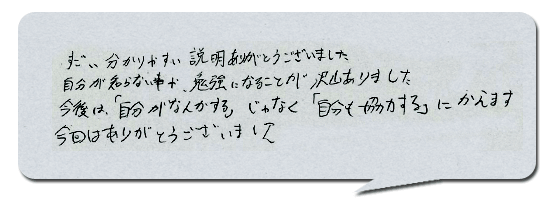 すごい分かりやすい説明ありがとうございました
自分が知らない事や、勉強になることが沢山ありました
今後は、「自分がなんかする」じゃなく「自分も協力する」にかえます
今回はありがとうございました